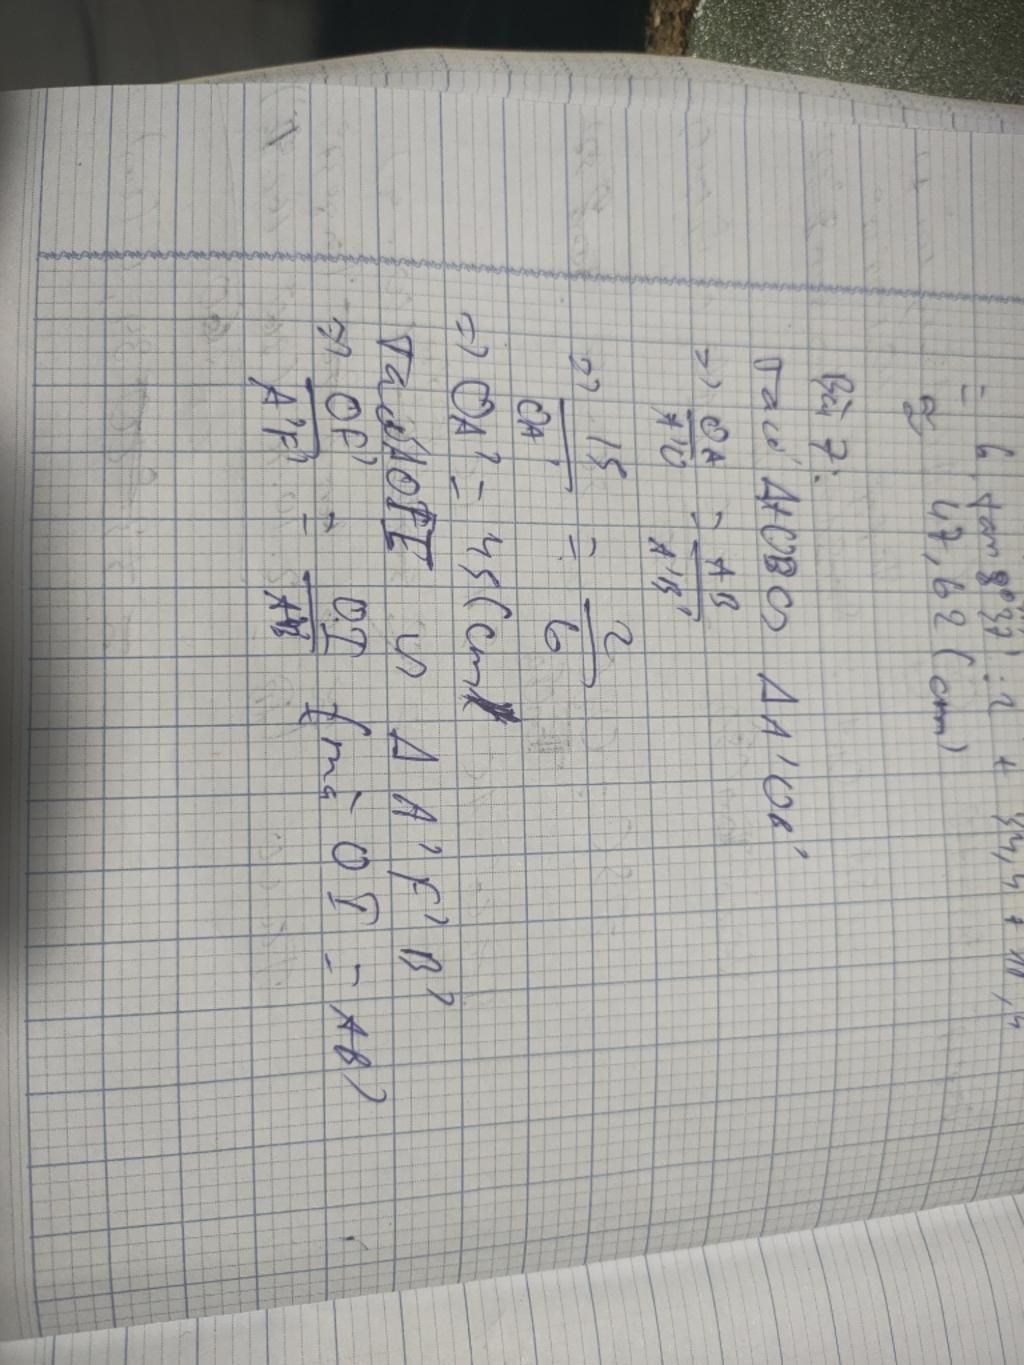 = 6 . tan 80°37' : 2 + 34,4 + 10,4
≈ 47,62 (cm)
Bài 7:
Ta có ΔAOB ∽ ΔA'OB'
=> OA/A'O = AB/A'B'
=> 15/OA' = 2/6
=> OA' = 45 (cm)
Ta có ΔOF'I ∽ ΔA'F'B'
=> OF'/A'F' = OI/A'B' (mà OI = AB)